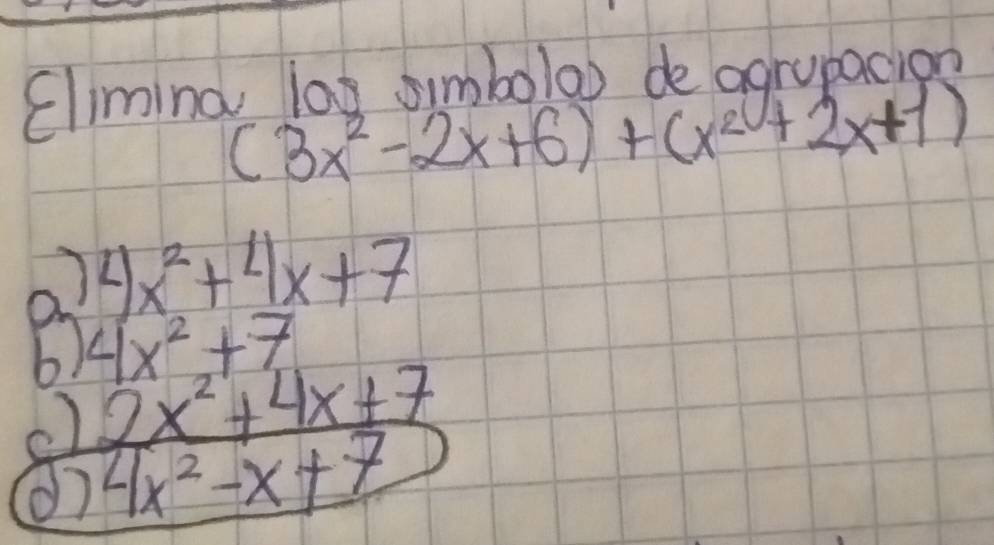 Elimina los simbolos de agrupacion
(3x² - 2x + 6) + (x² + 2x + 1)
a) 4x² + 4x + 7
b) 4x² + 7
c) 2x² + 4x + 7
d) 4x² - x + 7